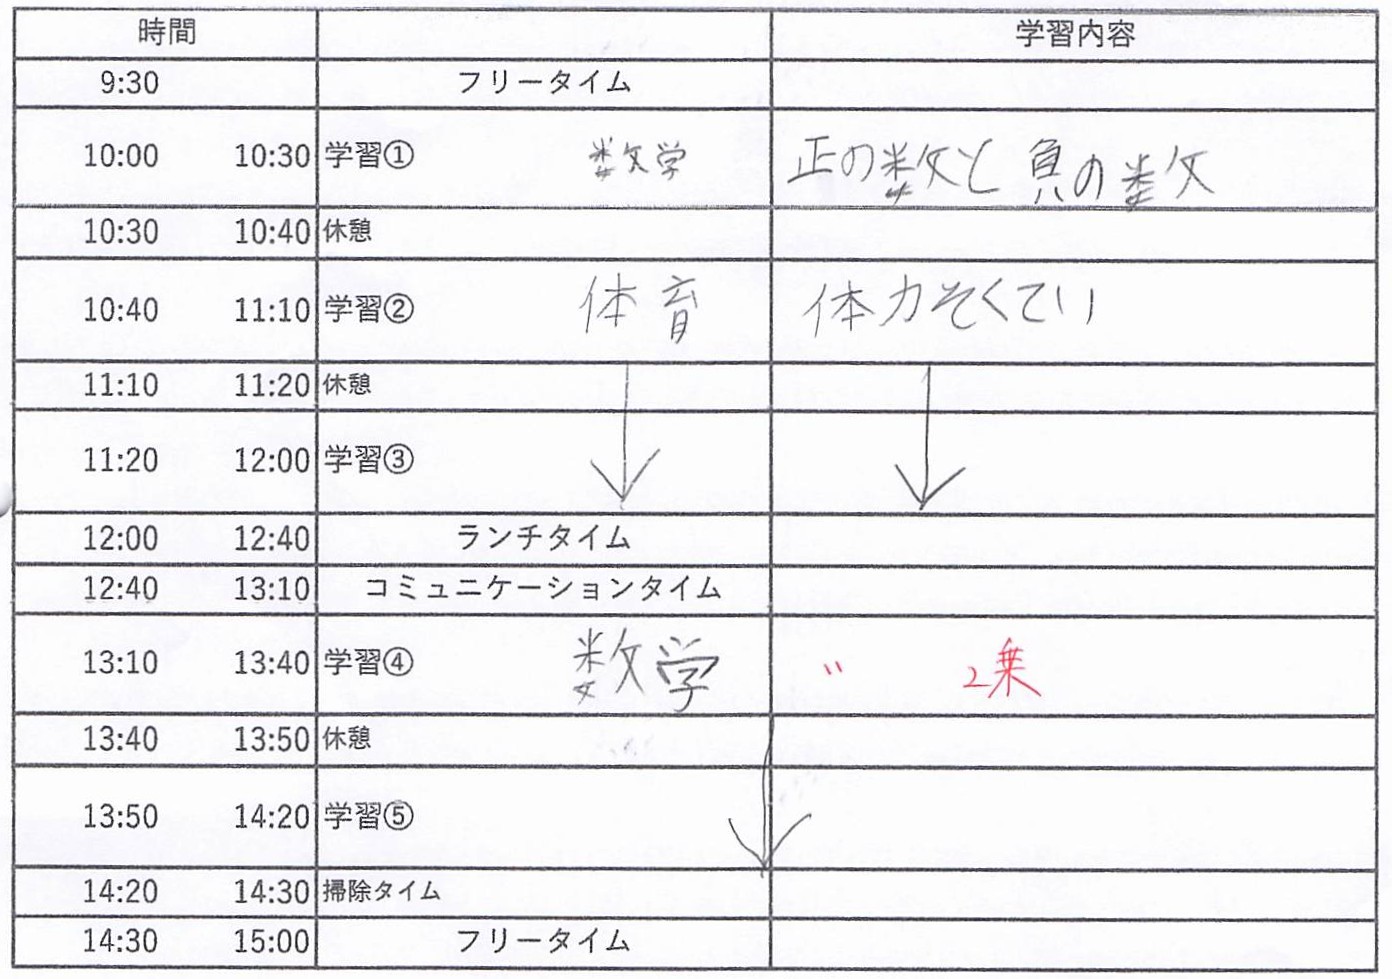 時間 学習内容
9:30 フリータイム
10:00 10:30 学習① 数学 正の数と負の数
10:30 10:40 休憩
10:40 11:10 学習② 体育 体力そくてい
11:10 11:20 休憩
11:20 12:00 学習③
12:00 12:40 ランチタイム
12:40 13:10 コミュニケーションタイム
13:10 13:40 学習④ 数学 〃 2乗
13:40 13:50 休憩
13:50 14:20 学習⑤
14:20 14:30 掃除タイム
14:30 15:00 フリータイム